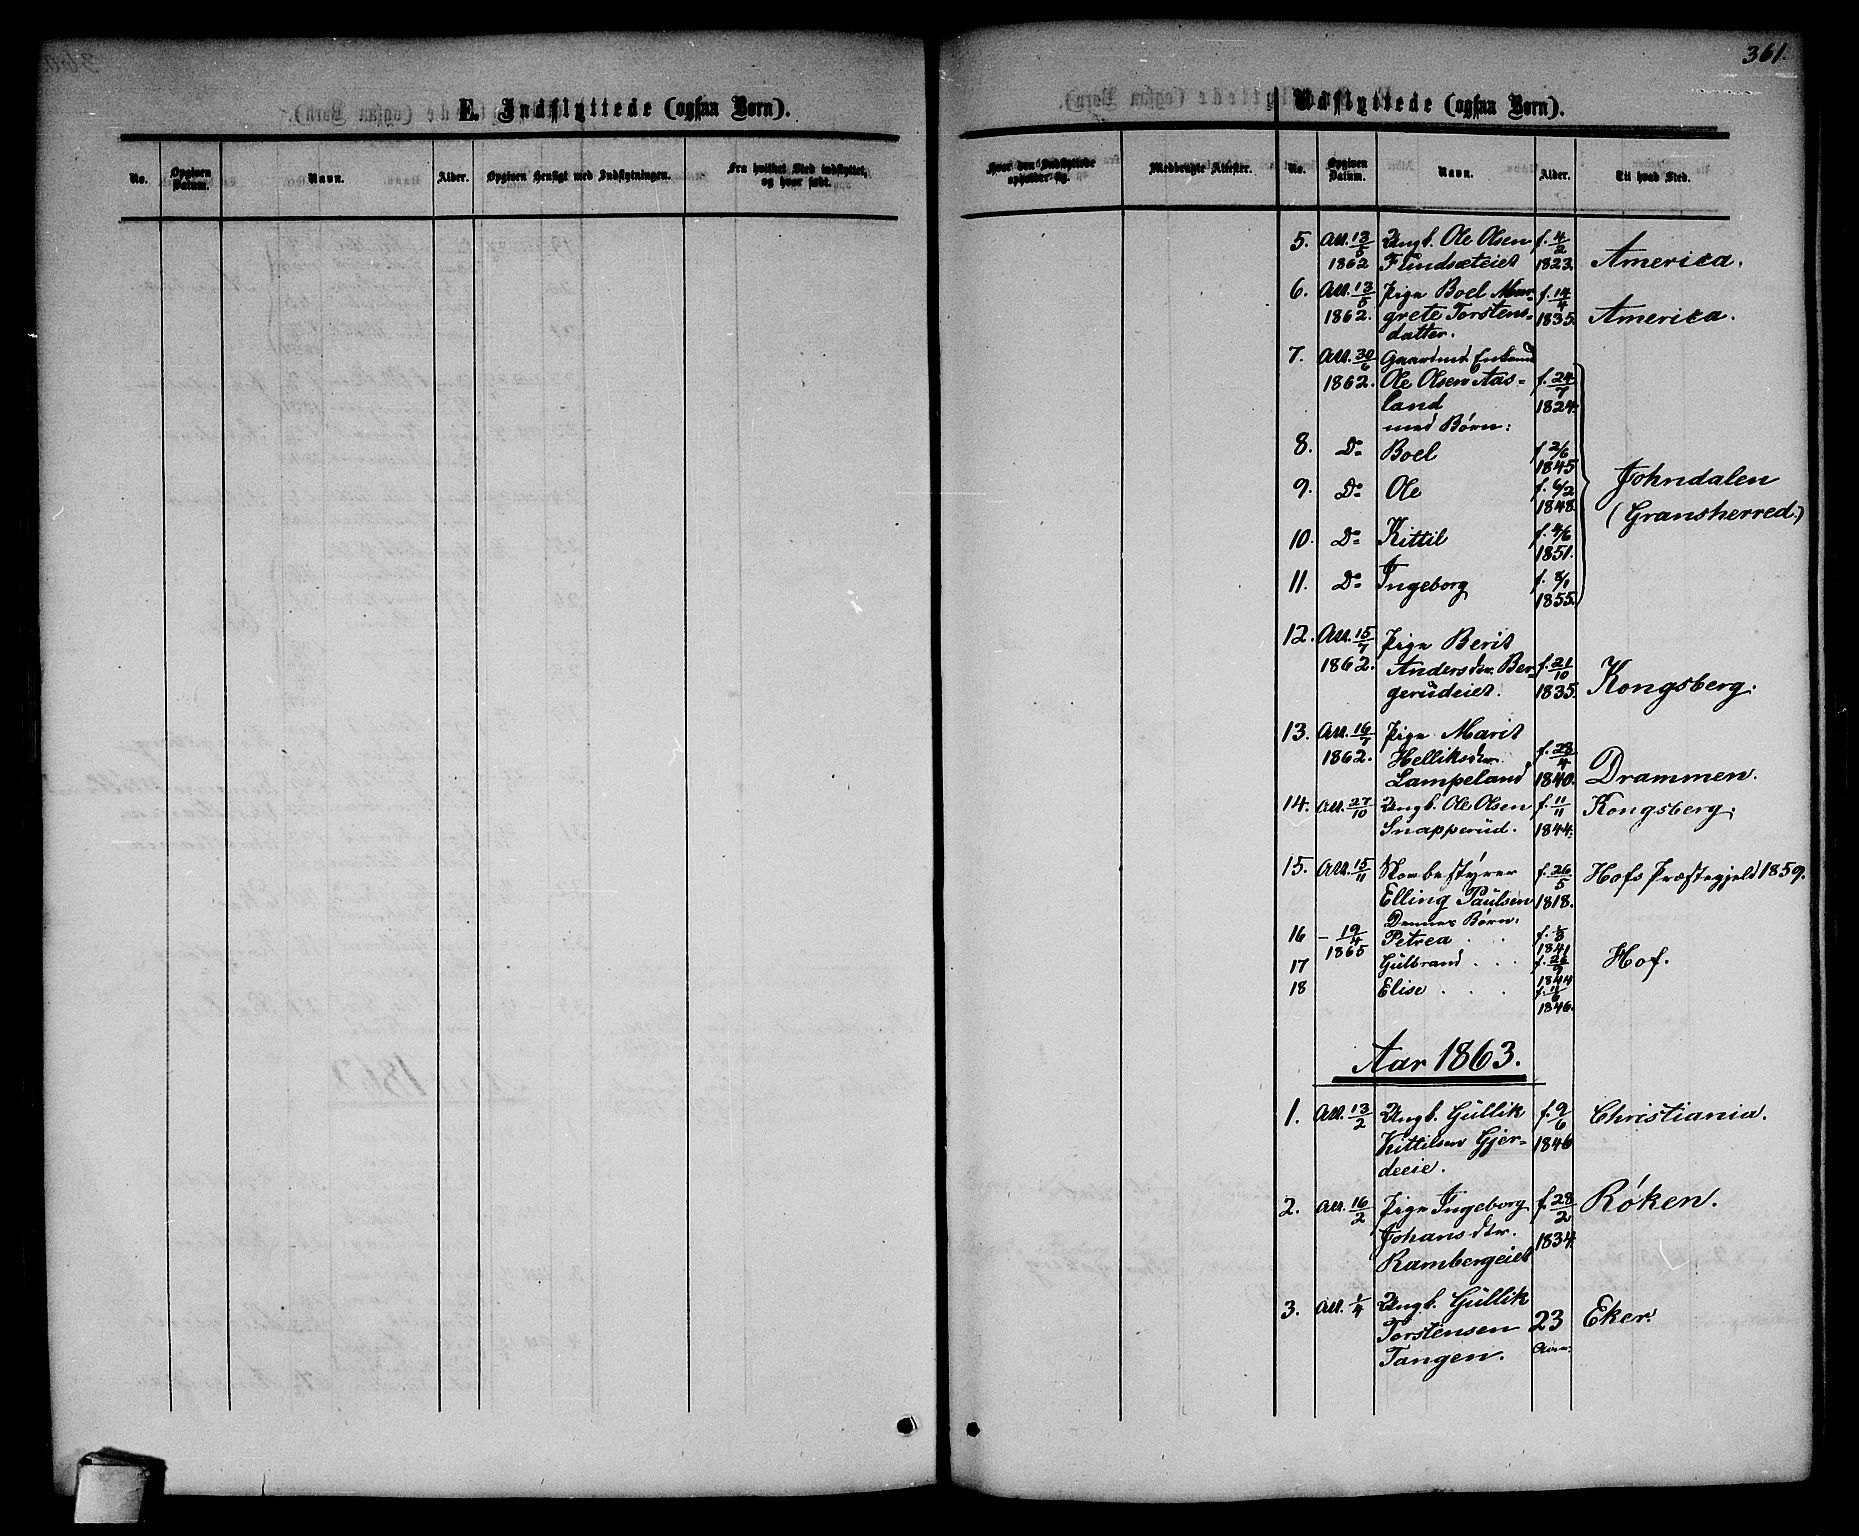 361.
E. Indflyttede (ogsaa Børn).
Udflyttede (ogsaa Børn).
No.
Opgiven Datum.
Navn.
Alder.
Opgiven Hensigt med Indflytningen.
Fra hvilket Sted indflyttet, og hvor født.
Hvor den Indflyttede opholder sig.
Medbragte Attester.
No.
Opgiven Datum.
Navn.
Alder.
Til hvad Sted.
5. Att. 13/5 Ungk. Ole Olsen f. 4/2
1862 Flindsæteiet 1823. America.
6. Att. 13/5 Pige Boel Mar- f. 14/4
1862. grete Torstens- 1835. America.
datter.
7. Att. 30/6 Gaardmd. Enkemd
1862. Ole Olsen Aas- f. 24/7
land 1824.
med Børn:
8. Do Boel f. 2/6
1845
9. Do Ole f. 6/2 Johndalen
1848. (Gransherred.)
10. Do Kittil f. 4/6
1851.
11. Do Ingeborg f. 8/1
1855.
12. Att. 15/7 Pige Berit
1862. Andersdtr. Ber- f. 21/10
gerudeiet. 1835. Kongsberg.
13. Att. 16/7 Pige Marit
1862. Helliksdtr. f. 28/4
Lampeland 1840. Drammen.
14. Att. 27/10 Ungk. Ole Olsen f. 11/11 Kongsberg.
Snapperud. 1844.
15. Att. 15/11 bestyrer f. 26/5 Hofs Præstegjeld 1859.
Elling Paulsen 1818.
Dennes Børn:
16 - 19/4 Petrea . . f. 1/8
1865 1841
17 Gulbrand . . . f. 26/9 Hof.
1844
18 Elise . . . f. 11/6
1846.
Aar 1863.
1. Att. 13/2 Ungk. Gullik f. 9/6 Christiania.
Kittilsen Gjer- 1846
deeie.
2. Att. 16/2 Pige Ingeborg f. 28/2 Røken.
Johansdtr. 1834.
Rambergeiet
3. Att. 1/4 Ungk. Gullik
Torstensen 23 Eker.
Tangen. Aar.